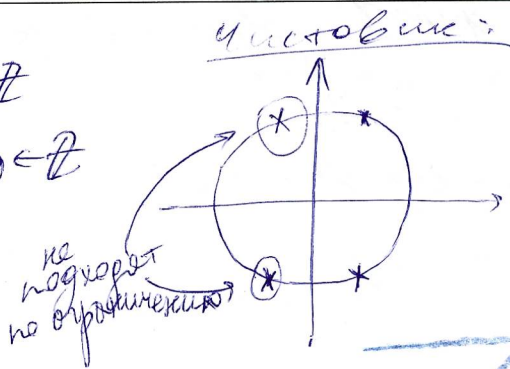 Чистовик:
ℤ
∈ ℤ
не
подходят
по ограничению